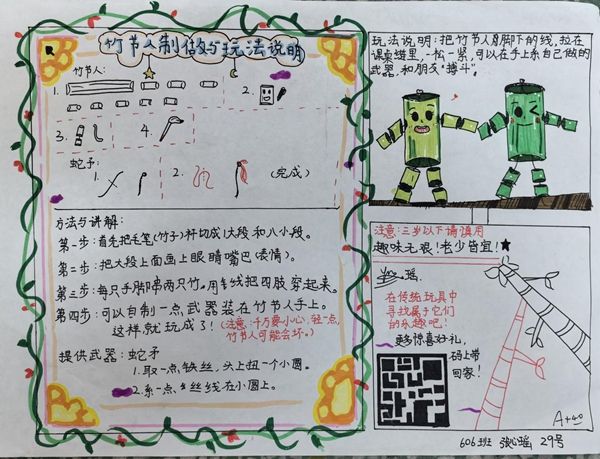 竹节人制做与玩法说明
竹节人:
1.
2.
3.
4.
蛇矛:
1.
2.
(完成)
方法与讲解:
第一步:首先把毛笔(竹子)杆切成1大段和八小段。
第二步:把大段上面画上眼睛嘴巴(表情)。
第三步:每只手脚串两只竹。用线把四肢穿起来。
第四步:可以自制一点武器装在竹节人手上。
这样就玩成了!(注意:千万要小心,轻一点,
竹节人可能会坏。)
提供武器:蛇矛
1.取一点铁丝,头上扭一个小圆。
2.系一点丝线在小圆上。
玩法说明:把竹节人身脚下的线,拉在
课桌缝里,一松一紧,可以在手上系自己做的
武器和朋友“搏斗”。
注意:三岁以下请慎用
趣味无限!老少皆宜!
瑶
在传统玩具中
寻找属于它们
的乐趣吧!
更多惊喜好礼,
码上带
回家!
606班 张心瑶 29号